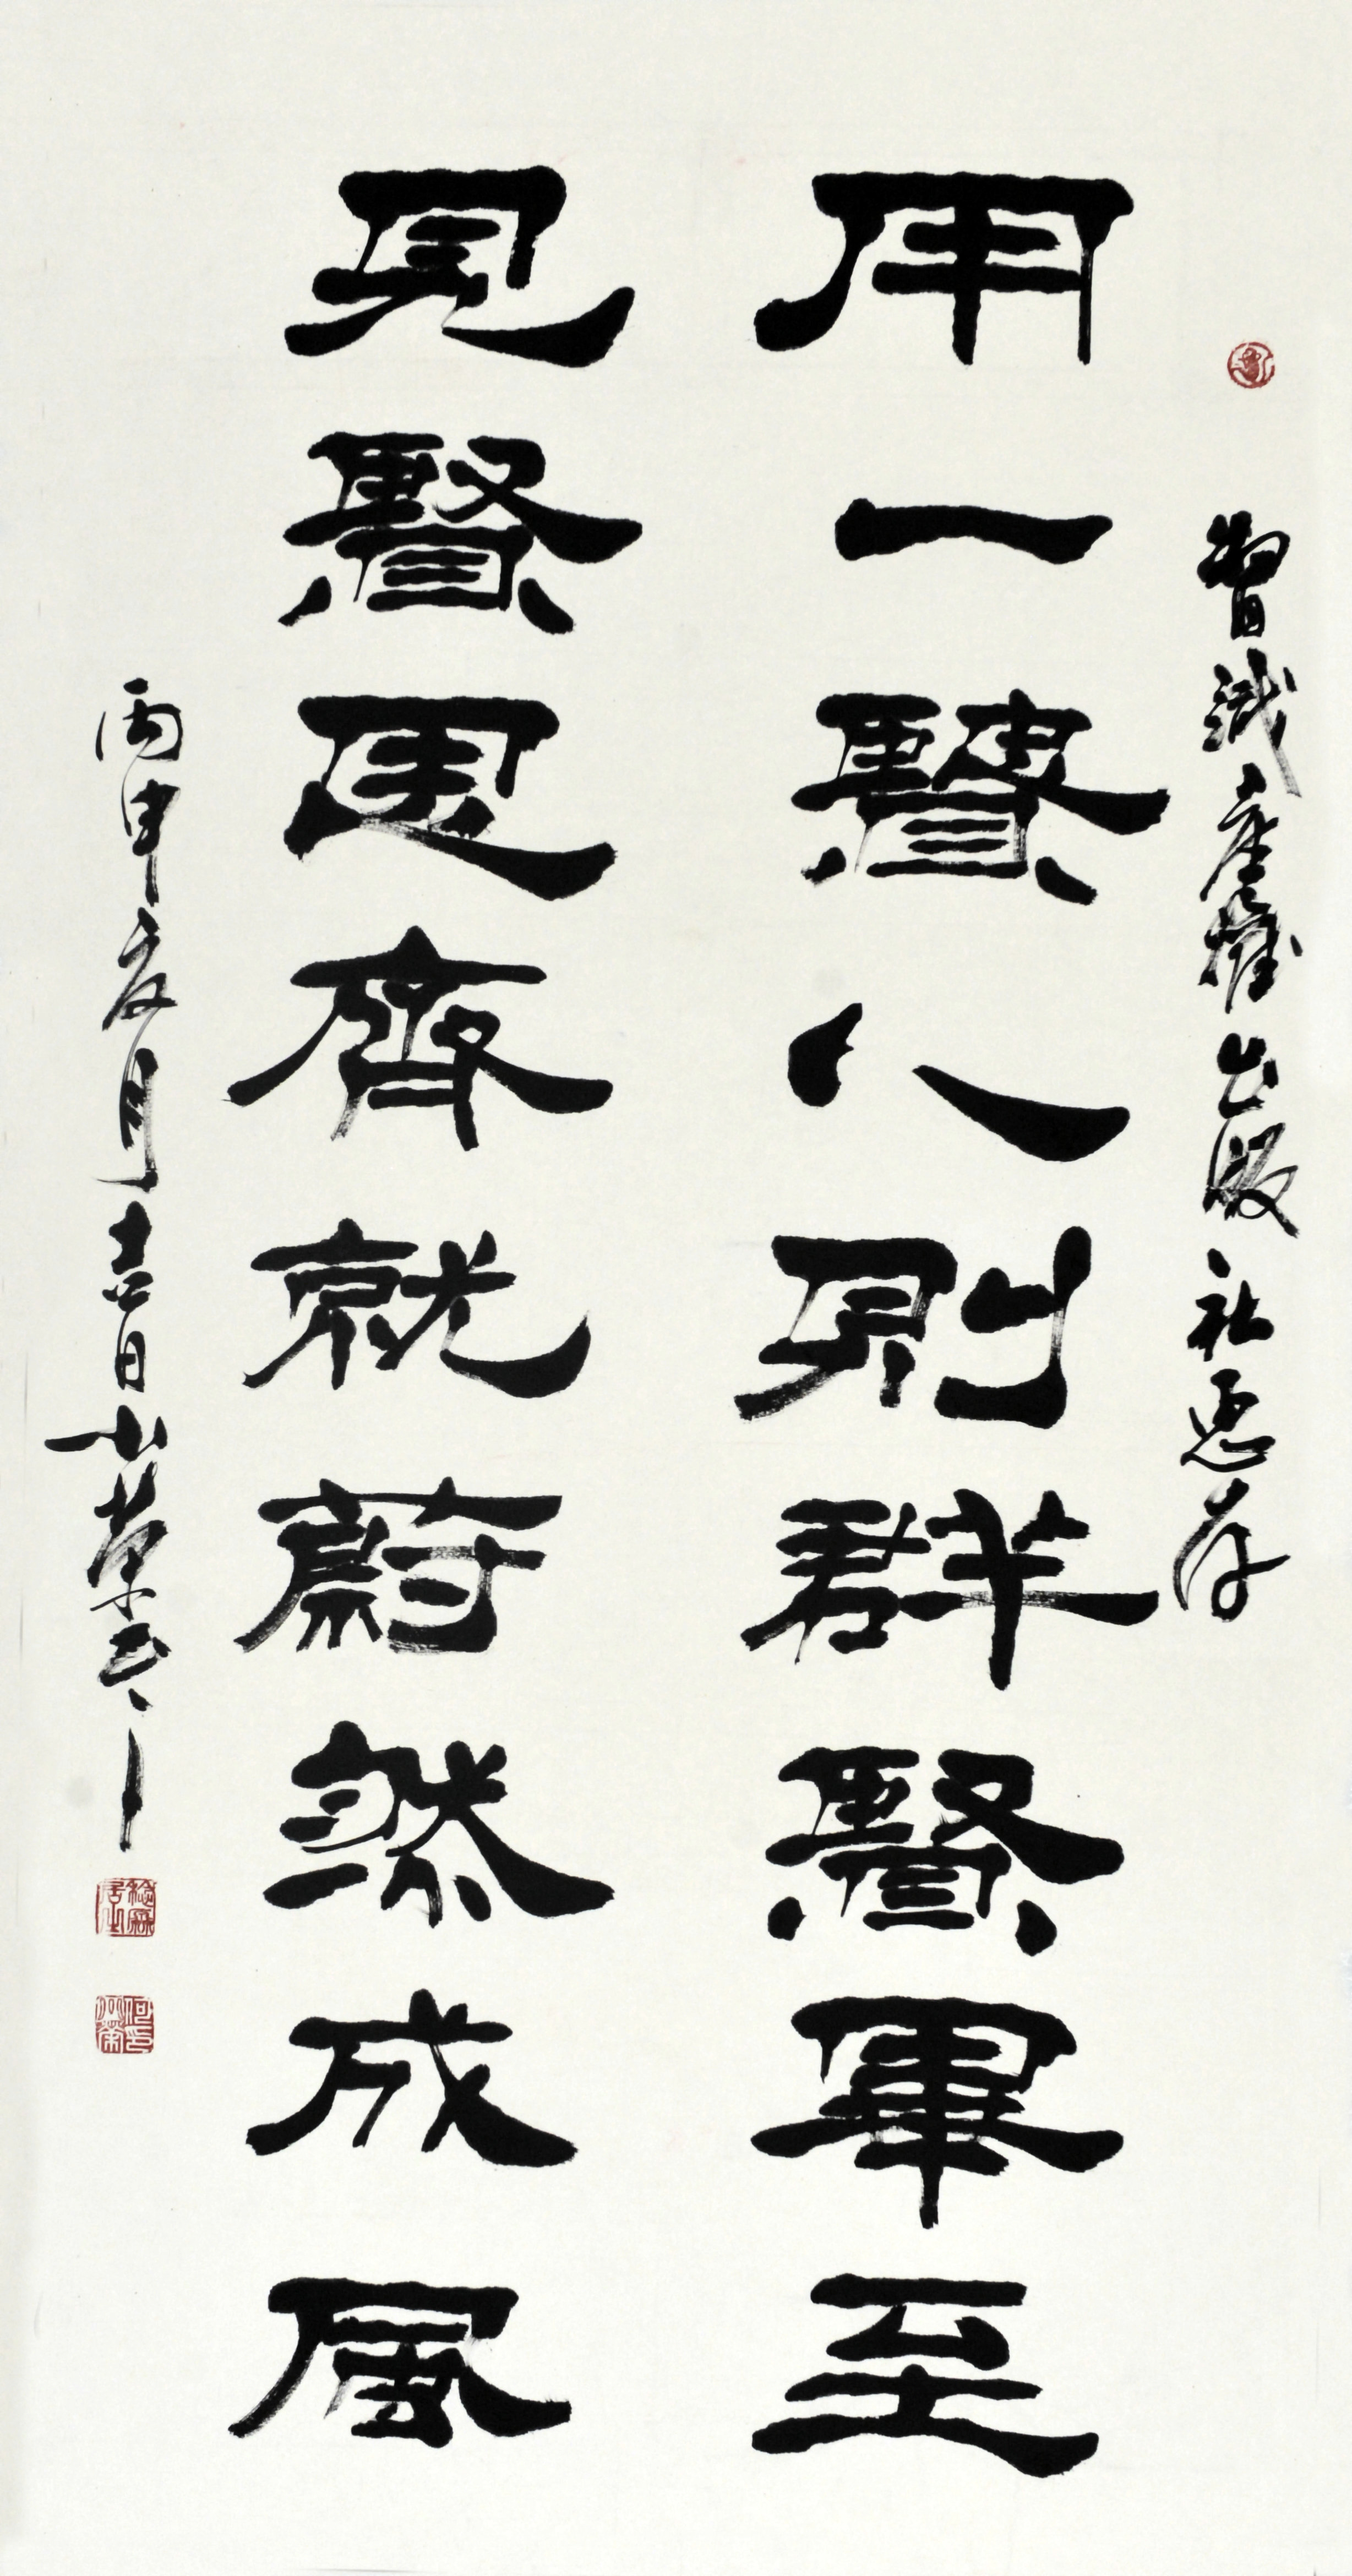 智識產權出版社惠存
用一賢人則群賢畢至
見賢思齊就蔚然成風
丙申夏月吉日